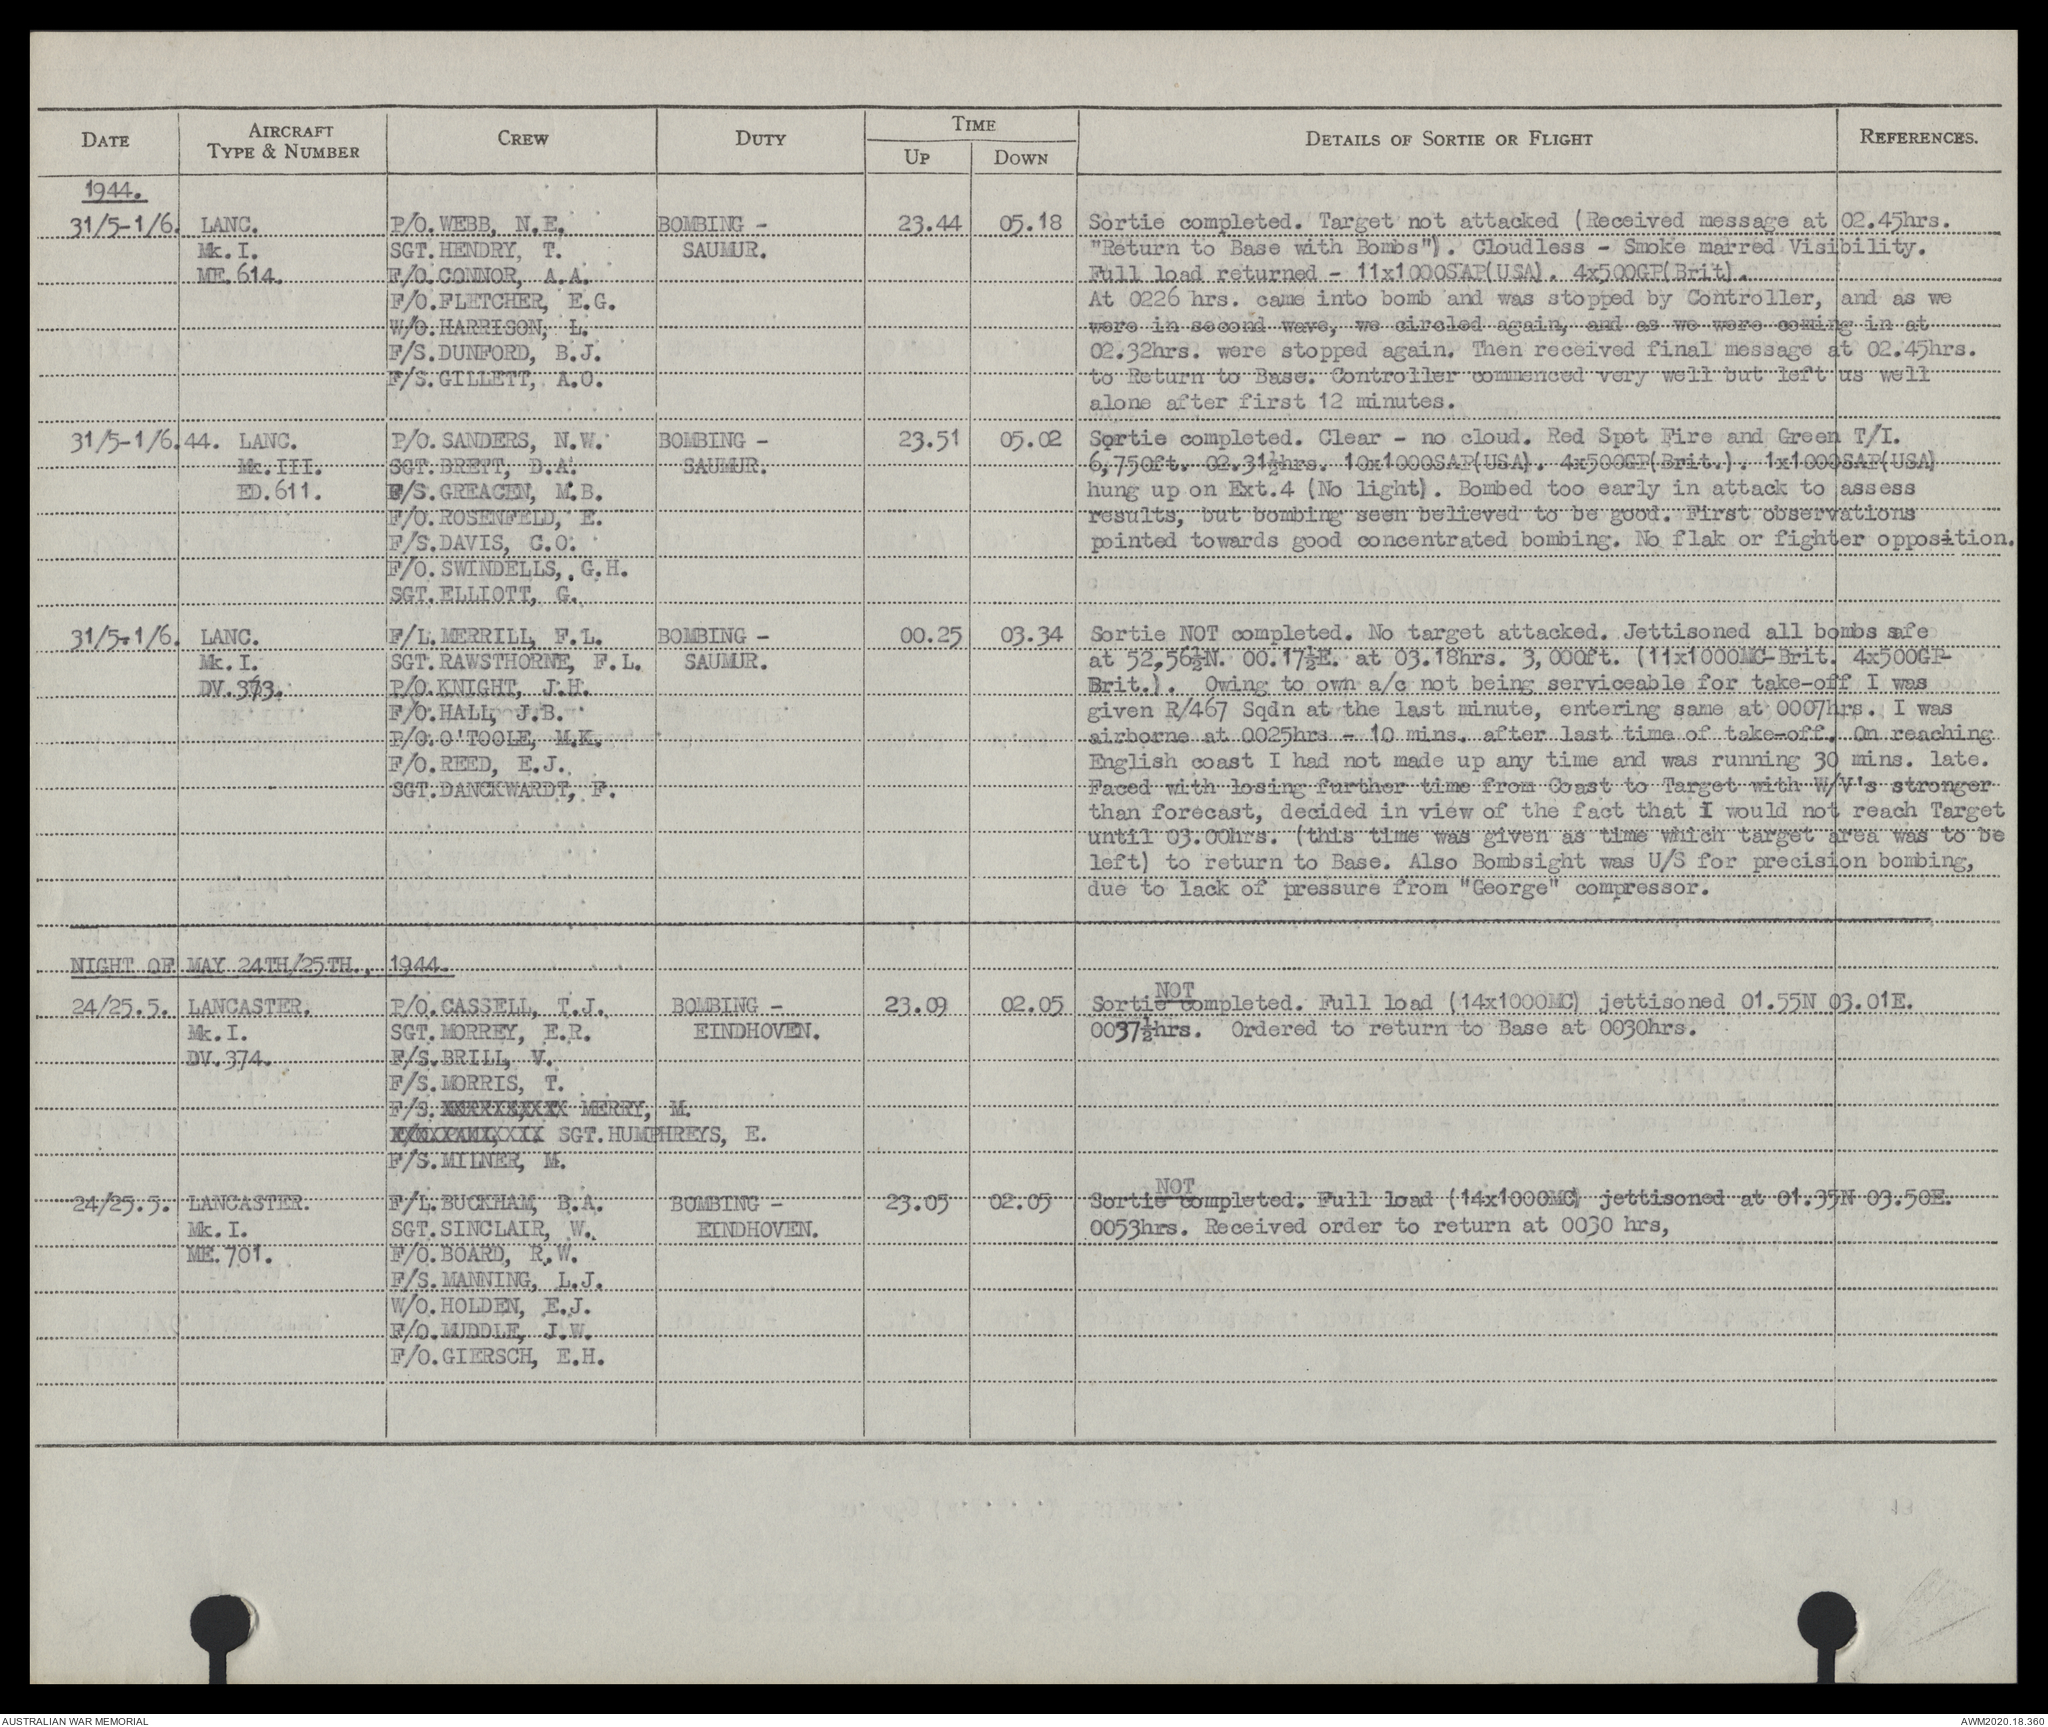 DATE AIRCRAFT TYPE & NUMBER CREW DUTY TIME UP DOWN DETAILS OF SORTIE OR FLIGHT REFERENCES.
1944.
31/5-1/6. LANC. P/O. WEBB, N.E. BOMBING - 23.44 05.18 Sortie completed. Target not attacked (Received message at 02.45hrs.
Mk.I. SGT. HENDRY, T. SAUMUR. "Return to Base with Bombs"). Cloudless - Smoke marred Visibility.
ME.614. F/O. CONNOR, A.A. Full load returned - 11x1000SAP(USA). 4x500GP(Brit).
F/O. FLETCHER, E.G. At 0226 hrs. came into bomb and was stopped by Controller, and as we
W/O. HARRISON, L. were in second wave, we circled again, and as we were coming in at
F/S. DUNFORD, B.J. 02.32hrs. were stopped again. Then received final message at 02.45hrs.
F/S. GILLETT, A.O. to Return to Base. Controller commenced very well but left us well
alone after first 12 minutes.
31/5-1/6.44. LANC. P/O. SANDERS, N.W. BOMBING - 23.51 05.02 Sortie completed. Clear - no cloud. Red Spot Fire and Green T/I.
Mk.III. SGT. BRETT, D.A. SAUMUR. 6,750ft. 02.31½hrs. 10x1000SAP(USA). 4x500GP(Brit.). 1x1000SAP(USA)
ED.611. F/S. GREACEN, M.B. hung up on Ext.4 (No light). Bombed too early in attack to assess
F/O. ROSENFELD, E. results, but bombing seen believed to be good. First observations
F/S. DAVIS, C.O. pointed towards good concentrated bombing. No flak or fighter opposition.
F/O. SWINDELLS, G.H.
SGT. ELLIOTT, G.
31/5-1/6. LANC. F/L. MERRILL, F.L. BOMBING - 00.25 03.34 Sortie NOT completed. No target attacked. Jettisoned all bombs safe
Mk.I. SGT. RAWSTHORNE, F.L. SAUMUR. at 52,56½N. 00.17½E. at 03.18hrs. 3,000ft. (11x1000MC-Brit. 4x500GP-
DV.373. P/O. KNIGHT, J.H. Brit.). Owing to own a/c not being serviceable for take-off I was
F/O. HALL, J.B. given R/467 Sqdn at the last minute, entering same at 0007hrs. I was
P/O. O'TOOLE, M.K. airborne at 0025hrs - 10 mins. after last time of take-off. On reaching
F/O. REED, E.J. English coast I had not made up any time and was running 30 mins. late.
SGT. DANCKWARDT, F. Faced with losing further time from Coast to Target with W/V's stronger
than forecast, decided in view of the fact that I would not reach Target
until 03.00hrs. (this time was given as time which target area was to be
left) to return to Base. Also Bombsight was U/S for precision bombing,
due to lack of pressure from "George" compressor.
NIGHT OF MAY 24TH/25TH., 1944.
NOT
24/25.5. LANCASTER. P/O. CASSELL, T.J. BOMBING - 23.09 02.05 Sortie completed. Full load (14x1000MC) jettisoned 01.55N 03.01E.
Mk.I. SGT. MORREY, E.R. EINDHOVEN. 0037½hrs. Ordered to return to Base at 0030hrs.
DV.374. F/S. BRILL, V.
F/S. MORRIS, T.
F/S. MERRY, M.
SGT. HUMPHREYS, E.
F/S. MILNER, M.
NOT
24/25.5. LANCASTER. F/L. BUCKHAM, B.A. BOMBING - 23.05 02.05 Sortie completed. Full load (14x1000MC) jettisoned at 01.35N 03.50E.
Mk.I. SGT. SINCLAIR, W. EINDHOVEN. 0053hrs. Received order to return at 0030 hrs,
ME.701. F/O. BOARD, R.W.
F/S. MANNING, L.J.
W/O. HOLDEN, E.J.
F/O. MUDDLE, J.W.
F/O. GIERSCH, E.H.
AUSTRALIAN WAR MEMORIAL AWM2020.18.360